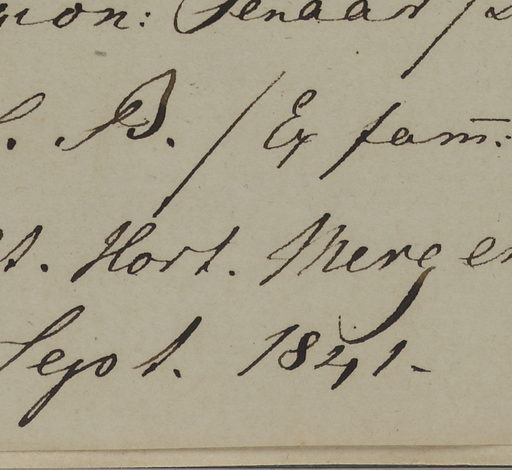 gion: Senaar /
B. / Ex fam:
t. Hort. Mergen
Sept. 1841.